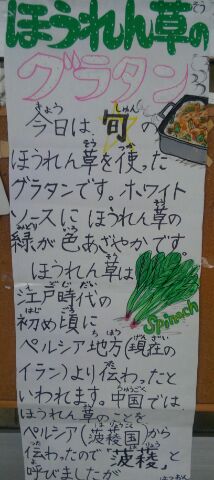 ほうれん草の
グラタン
今日は旬の
ほうれん草を使った
グラタンです。ホワイト
ソースにほうれん草の
緑が色あざやかです。
ほうれん草は
江戸時代の
初め頃に
Spinach
ペルシア地方(現在の
イラン)より伝わったと
いわれます。中国では
ほうれん草のことを
ペルシア(菠薐国)から
伝わったので"菠薐"と
呼びましたが